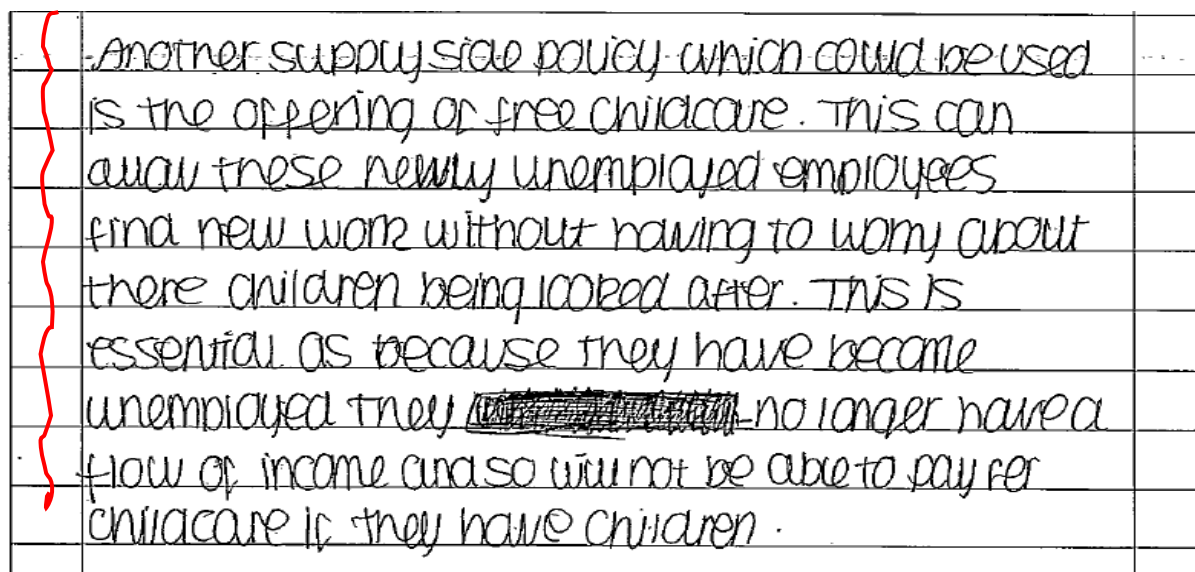 Another supply side policy which could be used
is the offering of free childcare. This can
allow these newly unemployed employees
find new work without having to worry about
there children being looked after. This is
essential as because they have become
unemployed they no longer have a
flow of income and so will not be able to pay for
childcare if they have children.